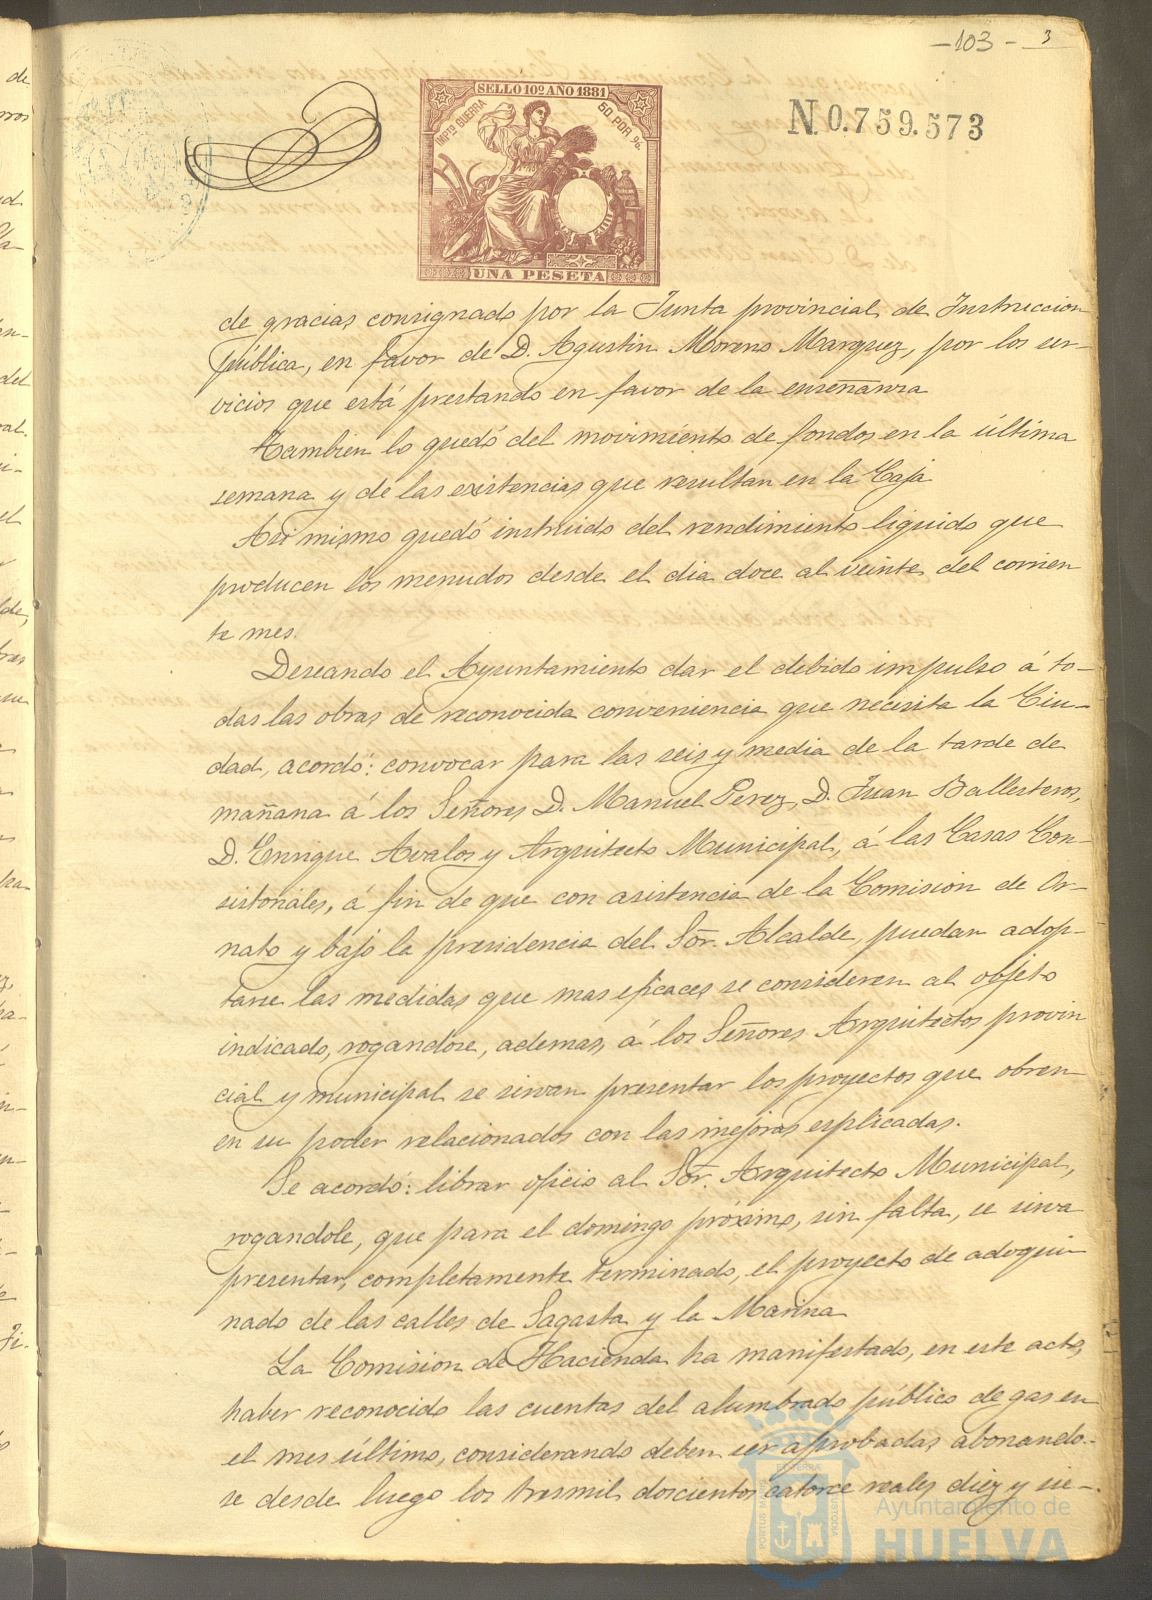 -103- 3
SELLO 10º AÑO 1881
IMPTO GUERRA
50 POR %
N. 0.759.573
UNA PESETA
de gracias consignado por la Junta provincial de Instruccion
pública, en favor de D. Agustin Moreno Marquez, por los ser-
vicios que está prestando en favor de la enseñanza
Tambien lo quedó del movimiento de fondos en la última
semana y de las existencias que resultan en la Caja
Asi mismo quedó instruido del rendimiento liquido que
producen los menudos desde el dia doce al veinte del corrien
te mes.
Deseando el Ayuntamiento dar el debido impulso á to-
das las obras de reconocida conveniencia que necesita la Ciu-
dad, acordó: convocar para las seis y media de la tarde de
mañana á los Señores D. Manuel Perez, D. Juan Ballesteros,
D. Enrique Avalos y Arquitecto Municipal, á las Casas Con-
sistoriales, á fin de que con asistencia de la Comision de Or-
nato y bajo la presidencia del Sor. Alcalde, puedan adop-
tarse las medidas que mas eficaces se consideren al objeto
indicado, rogandose, ademas, á los Señores Arquitectos provin
cial y municipal se sirvan presentar los proyectos que obren
en su poder relacionados con las mejoras esplicadas.
Se acordó: librar oficio al Sor. Arquitecto Municipal,
rogandole, que para el domingo próximo, sin falta, se sirva
presentar, completamente terminado, el proyecto de adoqui
nado de las calles de Sagasta y la Marina
La Comision de Hacienda ha manifestado, en este acto,
haber reconocido las cuentas del alumbrado público de gas en
el mes último, considerando deben ser aprobadas abonando-
se desde luego los tresmil doscientos catorce reales diez y sie-
Ayuntamiento de
HUELVA